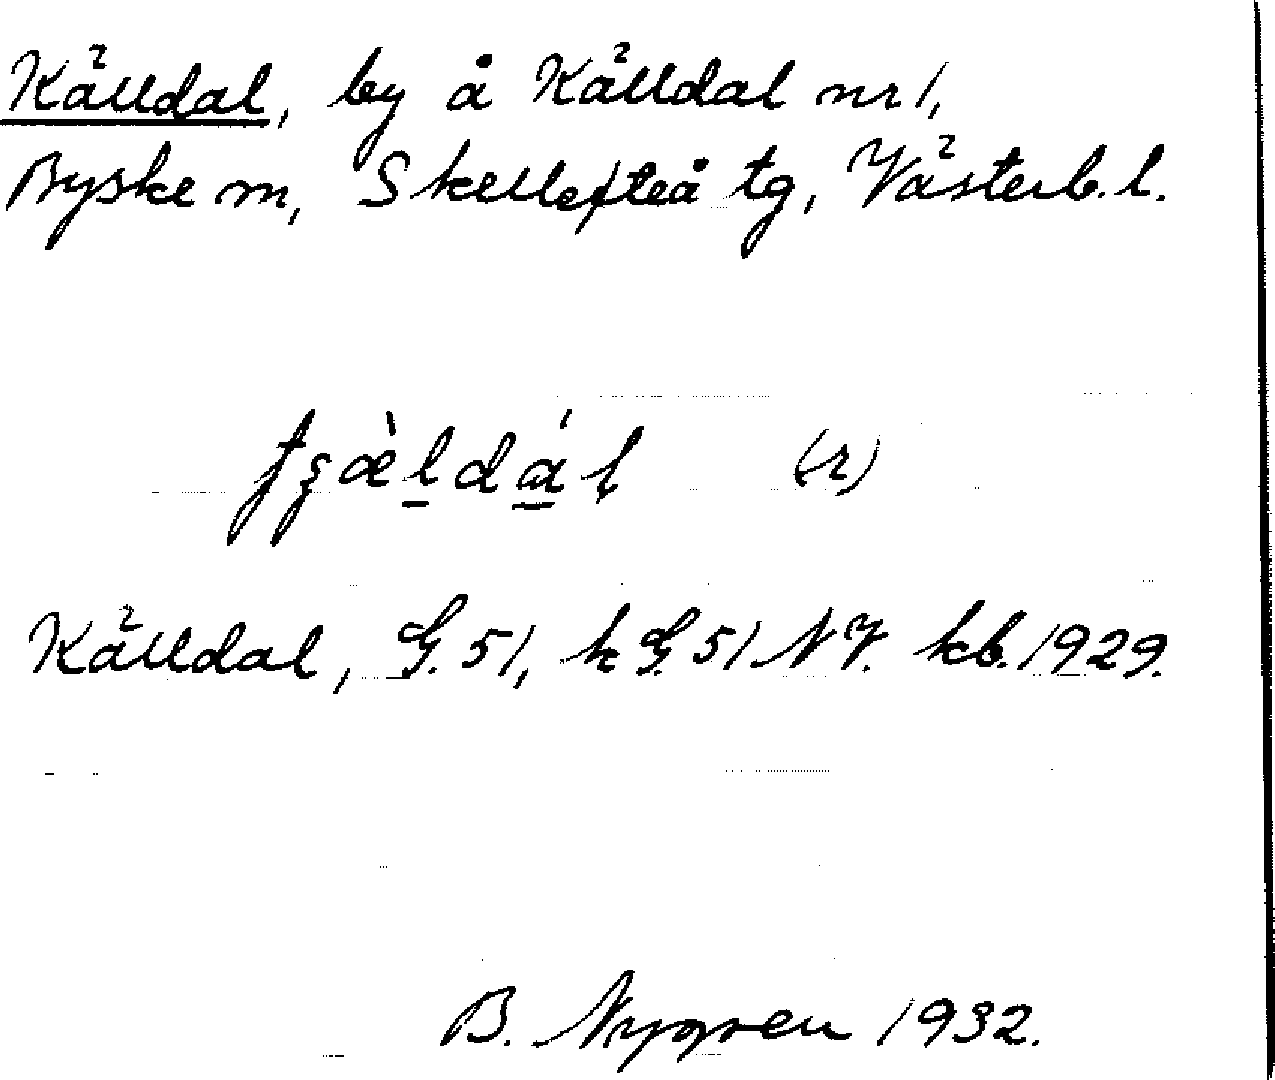 Källdal, by å Källdal nr 1,
Byske m, Skellefteå tg, Västerb. l.
(r)
Källdal, G. 51, k G. 51 NV. kb. 1929.
B. Nygren 1932.